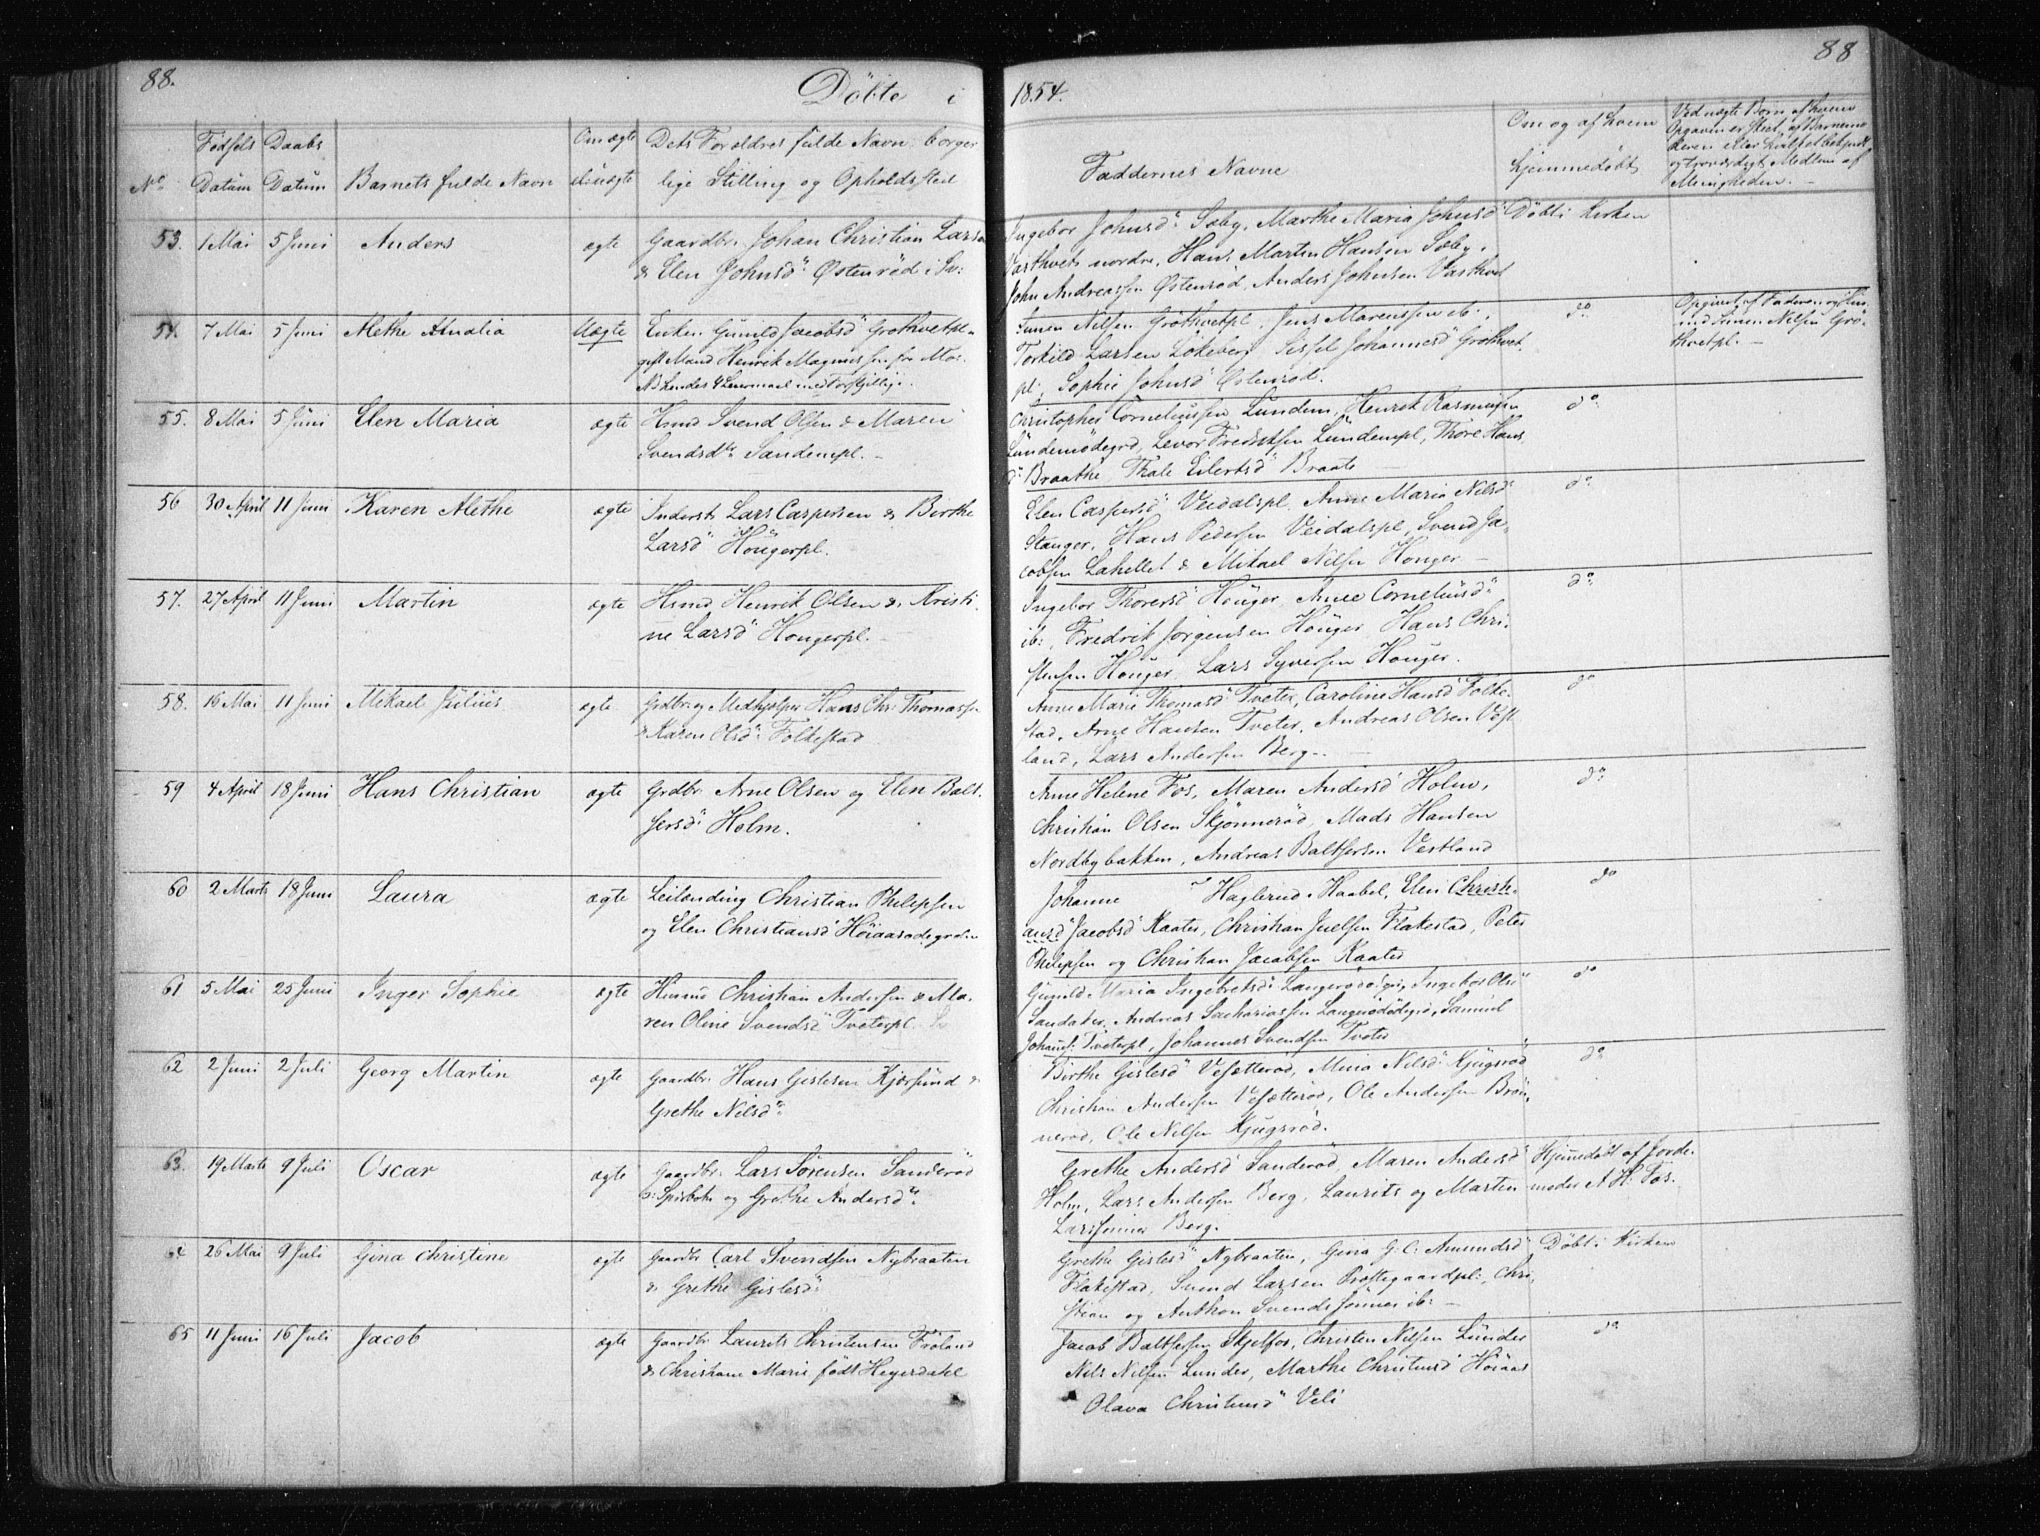 88.
Döbte i
1854.
88
No
Födsels Datum
Daabs Datum
Barnets fulde Navn
Om ægte el: uægte
Dets Forældres fulde Navn, borger
lige Stilling og Opholdsted
Faddernes Navne
Om og af hvem
hjemmedöbt
Ved uægte Börn af hvem
Opgaven er skeet, af Barnemo
deren eller
og troværdigt Medlem af
Menigheden.
53. 1 Mai 5 Juni Anders ægte Gaardbr. Johan Christian Larsen
& Elen Johnsd. Östenröd i Sv:
Ingebor Johnsd. Sæby, Marthe Maria Johnsd. Döbt i Kirken
Vasthvet nordre, Hans Martin Hansen Sæby,
John Andreassen Östenröd, Anders Johnsen Vasthvet
54. 7 Mai 5 Juni Alethe Amalia Uægte Enken Gunild Jacobsd. Grothvetpl.
gift Mand Henrik Magnussen fra Mos.
NB hendes 4 Leiermaal med Forskjellige.
Simen Nilsen Gröthvetpl., Jens Marenssen ib:, do
Torkild Larsen Lökeberg, Sissel Johannesd. Grothvet
pl., Sophie Johnsd. Östenröd.
Opgivet af Faderen og
Simen Nilsen Grö-
thvetpl. -
55. 8 Mai 5 Juni Elen Maria ægte Hmd Svend Olsen & Maren
Svendsdtr. Sandempl. -
Christopher Corneliussen Lundem, Henrik Rasmussen do
Lundemödegrd, Levor Fredriksen Lundempl, Thore Hans
d. Braathe Thale Eilertsd. Braate
56 30 April 11 Juni Karen Alethe ægte Inderst Lars Caspersen & Birthe
Larsd. Höugerpl.
Elen Caspersd. Veidalspl. Anne Maria Nilsd. do
Stanger, Hans Pedersen Veidalspl, Svend Ja-
cobsen Lahellet & Mikael Nilsen Houger -
57. 27 April 11 Juni Martin ægte Hmd Henrik Olsen & Kristi-
ne Larsd. Hougerpl. -
Ingebor Thorersd. Höuger, Anne Corneliusd. do
ib:, Fredrik Jörgensen Höuger Hans Chri-
stensen Höuger, Lars Syversen Houger.
58. 16 Mai 11 Juni Mikael Julius ægte Grdbr. og Medhjelper Hans Chr. Thomassen
& Karen Olsd. Folkestad
Anne Marie Thomasd. Tveter, Caroline Hansd. Folke- do
stad, Arne Hansen Tveter, Andreas Olsen Vest
land, Lars Andersen Berg. -
59 4 April 18 Juni Hans Christian ægte Grdbr. Arne Olsen og Elen Balt-
sersd. Holm.
Anne Helene Fos, Maren Andersd. Holm, do
Christian Olsen Skjönneröd, Mads Hansen
Nordbybakken, Andreas Baltsersen Vestland
60 2 Marts 18 Juni Laura ægte Leilænding Christian Philipsen
og Elen Christiansd. Höiaasödegrden
Johanne Haglerud, Kaabel, Elen Christi- do
ansd. Jacobsd. Kaater, Christian Juelsen Flakestad, Peter
Philipsen og Christian Jacobsen Kaater
61 5 Mai 25 Juni Inger Sophie ægte Huusmd Christian Andersen & Ma-
ren Oline Svendsd. Tveterpl.
Gunild Maria Ingebretsd. Langerödödegr, Ingebor Olsd. do
Sandaker, Andreas Sachariassen Langerödödegrd, Samuel
Johans: Tveterpl, Johannes Svendsen Tveter
62 2 Juni 2 Juli Georg Martin ægte Gaardbr. Hans Gislesen Kjærsund &
Grethe Nilsd.
Birthe Gislesd. Vesætteröd, Mina Nilsd. Kjugsröd do
Christian Andersen Vesætteröd, Ole Andersen Brön-
neröd, Ole Nilsen Kjugsröd.
63. 19 Marts 9 Juli Oscar ægte Gaardbr. Lars Sörensen Sanderöd
og Grethe Andersd.
Grethe Andersd. Sanderöd, Maren Andersd. Hjemedöbt af Jorde
Holm, Lars Andersen Berg, Laurits og Martin moder A. H. Fos.
Larssönner Berg.
64 26 Mai 9 Juli Gina Christine ægte Gaardbr. Carl Svendsen Nybraaten
& Grethe Gislesd.
Grethe Gislesd. Nybraaten, Gina G. C. Amundsd. Döbt i Kirken
Flakestad, Svend Larsen Præstegaardpl., Chri-
stian og Anthon Svends Sönner ib: -
65 11 Juni 16 Juli Jacob ægte Gaardbr. Laurits Christensen Fröland
& Christiane Marie födt Heyerdahl
Jacob Baltsersen Skjelfos, Christen Nilsen Lunder do
Nils Nilsen Lunder, Marthe Christensd. Höiaas
Olava Christensd. Veli